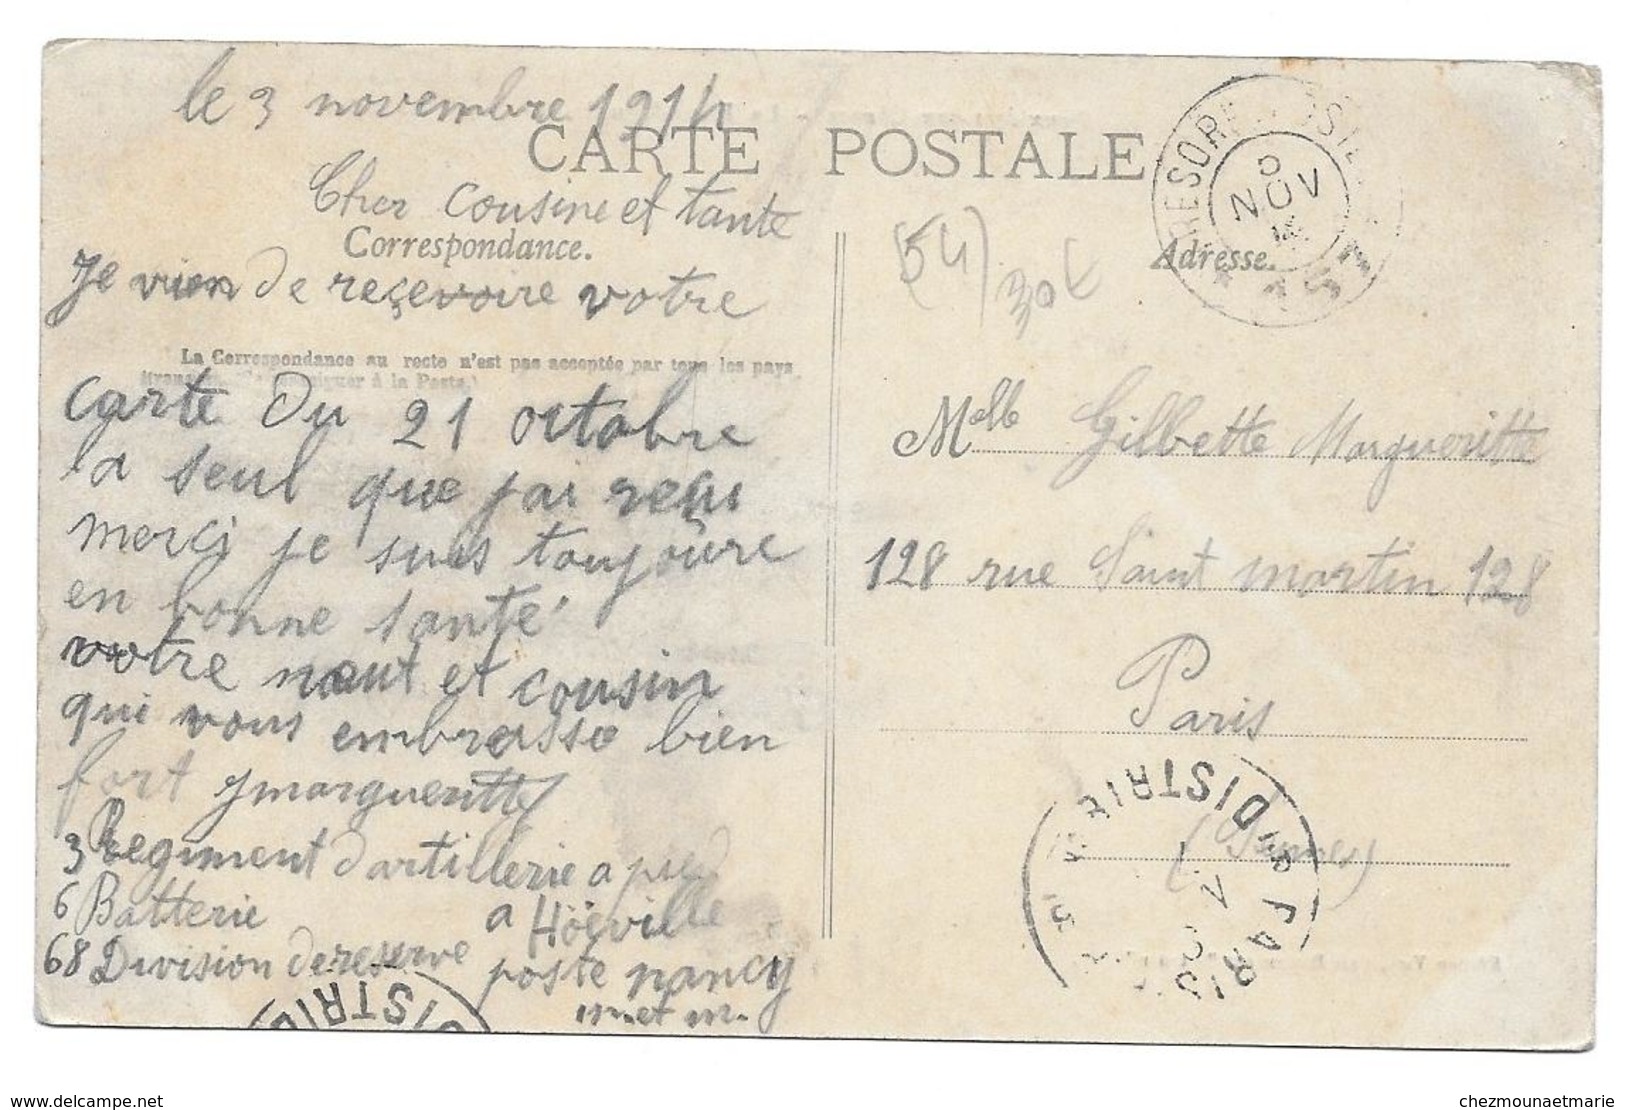 le 3 novembre 1914
CARTE POSTALE
Cher cousine et tante
Correspondance.
Je vien de reçevoire votre
La Correspondance au recto n'est pas acceptée par tous les pays
à la Poste.)
carte du 21 octobre
la seul que j'ai reçu
merçi je suis toujoure
en bonne santé
votre neveut et cousin
qui vous embrasse bien
fort J margueritte
3 Regiment d'artillerie a pied
6 Batterie a Höéville
68 Division de reserve poste nancy
m. et m.
TRESOR POSTES
NOV
Adresse.
(54)
30€
Melle Gilbette Margueritte
128 rue Saint martin 128
Paris
PARIS DISTRIB
DISTRIB
delcampe.net
chezmounaetmarie